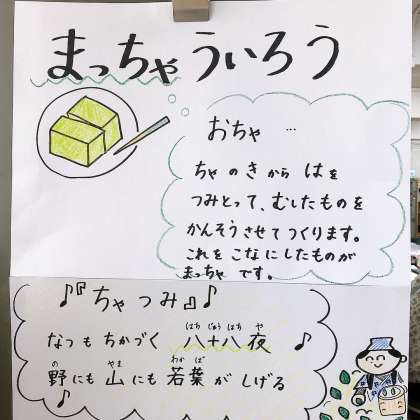 まっちゃういろう
おちゃ …
ちゃ の き から は を
つみとって、むしたものを
かんそうさせてつくります。
これを こなに したものが
まっちゃ です。
♪『ちゃ つみ』♪
なつ も ちかづく 八十八夜 ♪
はち じゅう はち や
野にも 山にも 若葉が しげる
の やま わか ば
♪